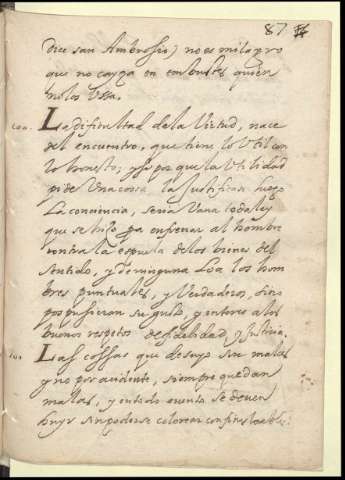 87
dice san Ambrosio) no es milagro
que no cayga en embustes quien
no los Ussa.
La dificultad de la Virtud, nace
del encuentro, que tiene lo Util con
lo honesto; y si por que la Utilidad
pide Una cossa, la justifica luego
La conciencia, seria Vana toda ley
que se hizo pa enfrenar al hombre
contra la espuela de los bienes del
sentido, y de ninguna Loa los hom
bres puntuales, y Verdaderos, si no
pospusieran su gusto, y interes a los
buenos respetos de fidelidad, y Justicia.
Las cossas que de suyo son malas
y no por acidente, siempre quedan
malas, y en todo evento se deven
huyr sin poderse colorear con fines